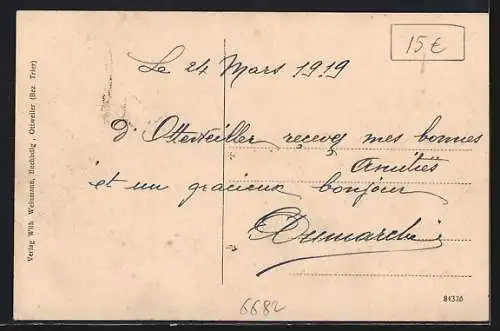 15 €
Le 24 Mars 1919
D' Ottweiller recevez mes bonnes
Amitiés
et un gracieux bonjour
Verlag Wilh. Weissmann, Buchhdlg., Ottweiler (Bez. Trier)
84326
6682